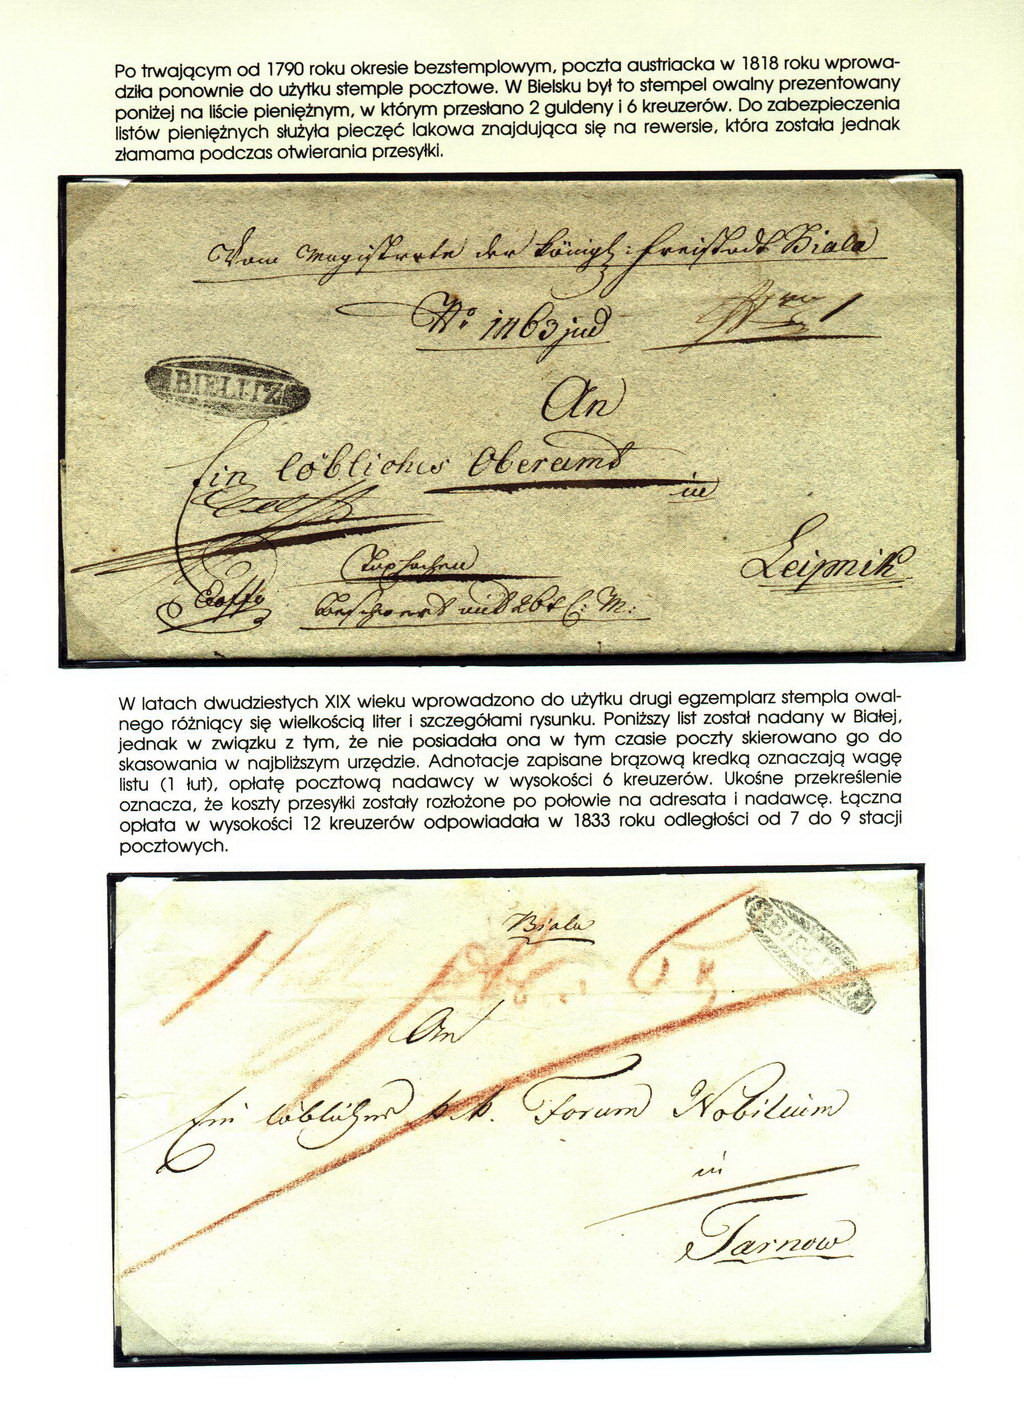 Po trwającym od 1790 roku okresie bezstemplowym, poczta austriacka w 1818 roku wprowa-
dziła ponownie do użytku stemple pocztowe. W Bielsku był to stempel owalny prezentowany
poniżej na liście pieniężnym, w którym przesłano 2 guldeny i 6 kreuzerów. Do zabezpieczenia
listów pieniężnych służyła pieczęć lakowa znajdująca się na rewersie, która została jednak
złamama podczas otwierania przesyłki.
Vom Magistrate der königl: Freistadt Biala
No 1463 jud
BIELITZ
An
Ein löbliches Oberamt
in
Leipnik
W latach dwudziestych XIX wieku wprowadzono do użytku drugi egzemplarz stempla owal-
nego różniący się wielkością liter i szczegółami rysunku. Poniższy list został nadany w Białej,
jednak w związku z tym, że nie posiadała ona w tym czasie poczty skierowano go do
skasowania w najbliższym urzędzie. Adnotacje zapisane brązową kredką oznaczają wagę
listu (1 łut), opłatę pocztową nadawcy w wysokości 6 kreuzerów. Ukośne przekreślenie
oznacza, że koszty przesyłki zostały rozłożone po połowie na adresata i nadawcę. Łączna
opłata w wysokości 12 kreuzerów odpowiadała w 1833 roku odległości od 7 do 9 stacji
pocztowych.
Biala
BIELITZ
An
Ein löbliches k. k. Forum Nobilium
in
Tarnow